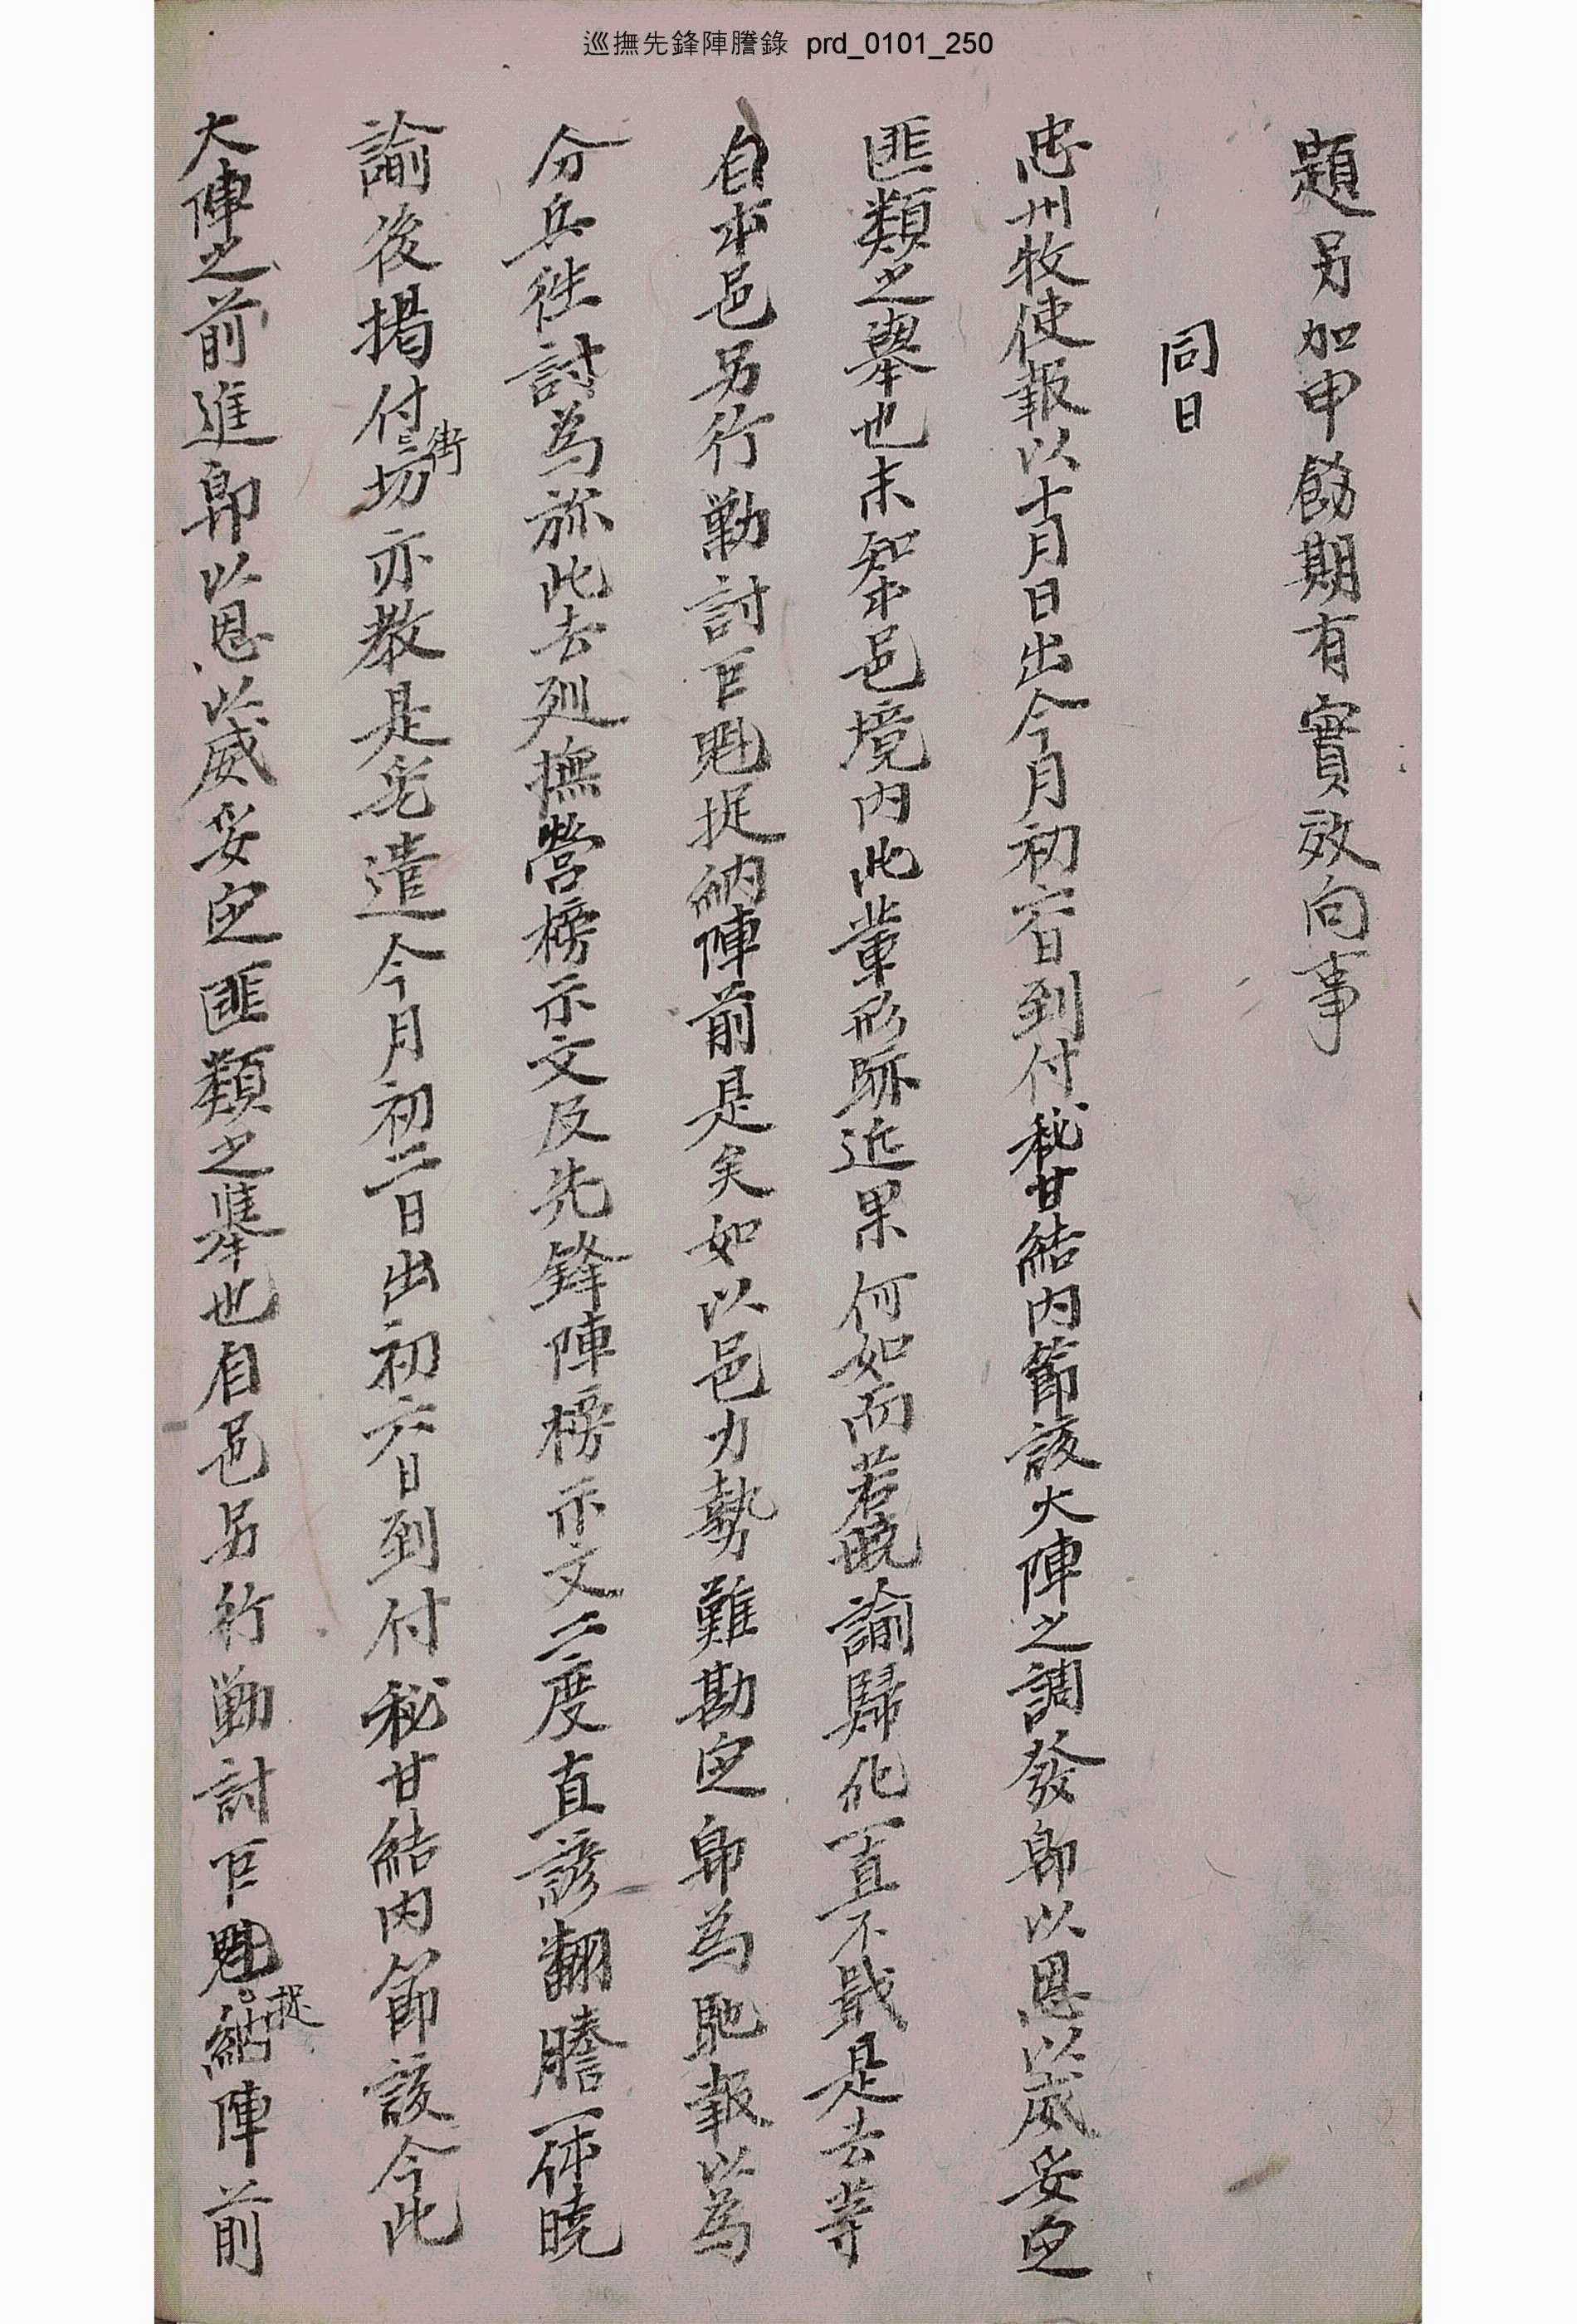 巡撫先鋒陣謄錄 prd_0101_250
題另加申飭期有實效向事
同日
忠州牧使報以十月日出今月初六日到付秘甘結內節該大陣之調發卽以恩以威妥定
匪類之擧也未知本邑境內此輩形跡近果何如而若曉諭歸化一直不戢是去等
自本邑另行勦討巨魁捉納陣前是矣如以邑力勢難勘定卽爲馳報以爲
分兵往討爲旀此去巡撫營榜示文及先鋒陣榜示文二度直諺翻謄一体曉
諭後揭付街坊亦敎是乎遣今月初二日出初六日到付秘甘結內節該今此
大陣之前進卽以恩以威妥定匪類之擧也自邑另行勦討巨魁捉納陣前